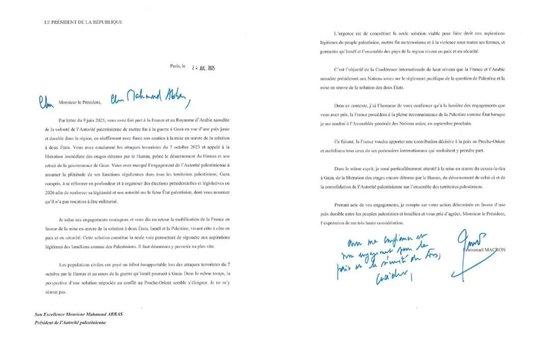 LE PRÉSIDENT DE LA RÉPUBLIQUE
Paris, le 24 JUL. 2025
Cher Monsieur le Président, Cher Mahmoud Abbas,
Par lettre du 9 juin 2025, vous avez fait part à la France et au Royaume d'Arabie saoudite
de la volonté de l'Autorité palestinienne de mettre fin à la guerre à Gaza en vue d'une paix juste et
durable dans la région, en réaffirmant avec force son soutien à la mise en œuvre de la solution
à deux États. Vous avez condamné les attaques terroristes du 7 octobre 2023 et appelé à la
libération immédiate des otages détenus par le Hamas, prôné le désarmement du Hamas et son
retrait de la gouvernance de Gaza. Vous avez marqué l'engagement de l'Autorité palestinienne à
assumer la plénitude de ses fonctions régaliennes dans tous les territoires palestiniens, Gaza
compris, à se réformer en profondeur et à organiser des élections présidentielles et législatives en
2026 afin de renforcer sa légitimité et son autorité au sein du futur État palestinien, dont vous soumettez
qu'il n'a pas vocation à être militarisé.
Je salue ces engagements courageux et vous dis en retour la mobilisation de la France en
faveur de la mise en œuvre de la solution à deux États, Israël et la Palestine, vivant côte à côte
en paix et en sécurité. Cette solution constitue la seule voie permettant de répondre aux aspirations
légitimes des Israéliens comme des Palestiniens. Il faut désormais y parvenir au plus vite.
Les populations civiles ont payé un tribut insupportable lors des attaques terroristes du 7
octobre par le Hamas et au cours de la guerre qu'Israël poursuit à Gaza. Dans le même temps, la
perspective d'une solution négociée au conflit au Proche-Orient semble s'éloigner. Je ne m'y
résous pas.
Son Excellence Monsieur Mahmoud ABBAS
Président de l'Autorité palestinienne
L'urgence est de concrétiser la seule solution viable pour faire droit aux aspirations
légitimes du peuple palestinien, mettre fin au terrorisme et à la violence sous toutes ses formes, et
permettre qu'Israël et l'ensemble des pays de la région vivent en paix et en sécurité.
C'est l'objectif de la Conférence internationale de haut niveau que la France et l'Arabie
saoudite président aux Nations unies sur le règlement pacifique de la question de Palestine et la
mise en œuvre de la solution des deux États.
Dans ce contexte, j'ai l'honneur de vous confirmer qu'à la lumière des engagements que
vous avez pris, la France procédera à la pleine reconnaissance de la Palestine comme État lorsque
je me rendrai à l'Assemblée générale des Nations unies, en septembre prochain.
Ce faisant, la France voudra apporter une contribution décisive à la paix au Proche-Orient
et mobilisera tous ceux de ses partenaires internationaux qui souhaitent y prendre part.
Dans le même esprit, je serai particulièrement attentif à la mise en œuvre du cessez-le-feu à
Gaza, de la libération des otages encore détenus par le Hamas, du désarmement de celui-ci et de
la consolidation de l'Autorité palestinienne sur l'ensemble des territoires palestiniens.
Prenant acte de vos engagements, je compte sur votre action déterminée en faveur d'une
paix durable entre les peuples palestiniens et israéliens et vous prie d'agréer, Monsieur le Président,
l'expression de ma très haute considération.
Avec ma confiance et
mon engagement pour la
paix et la sécurité de tous,
Emmanuel MACRON